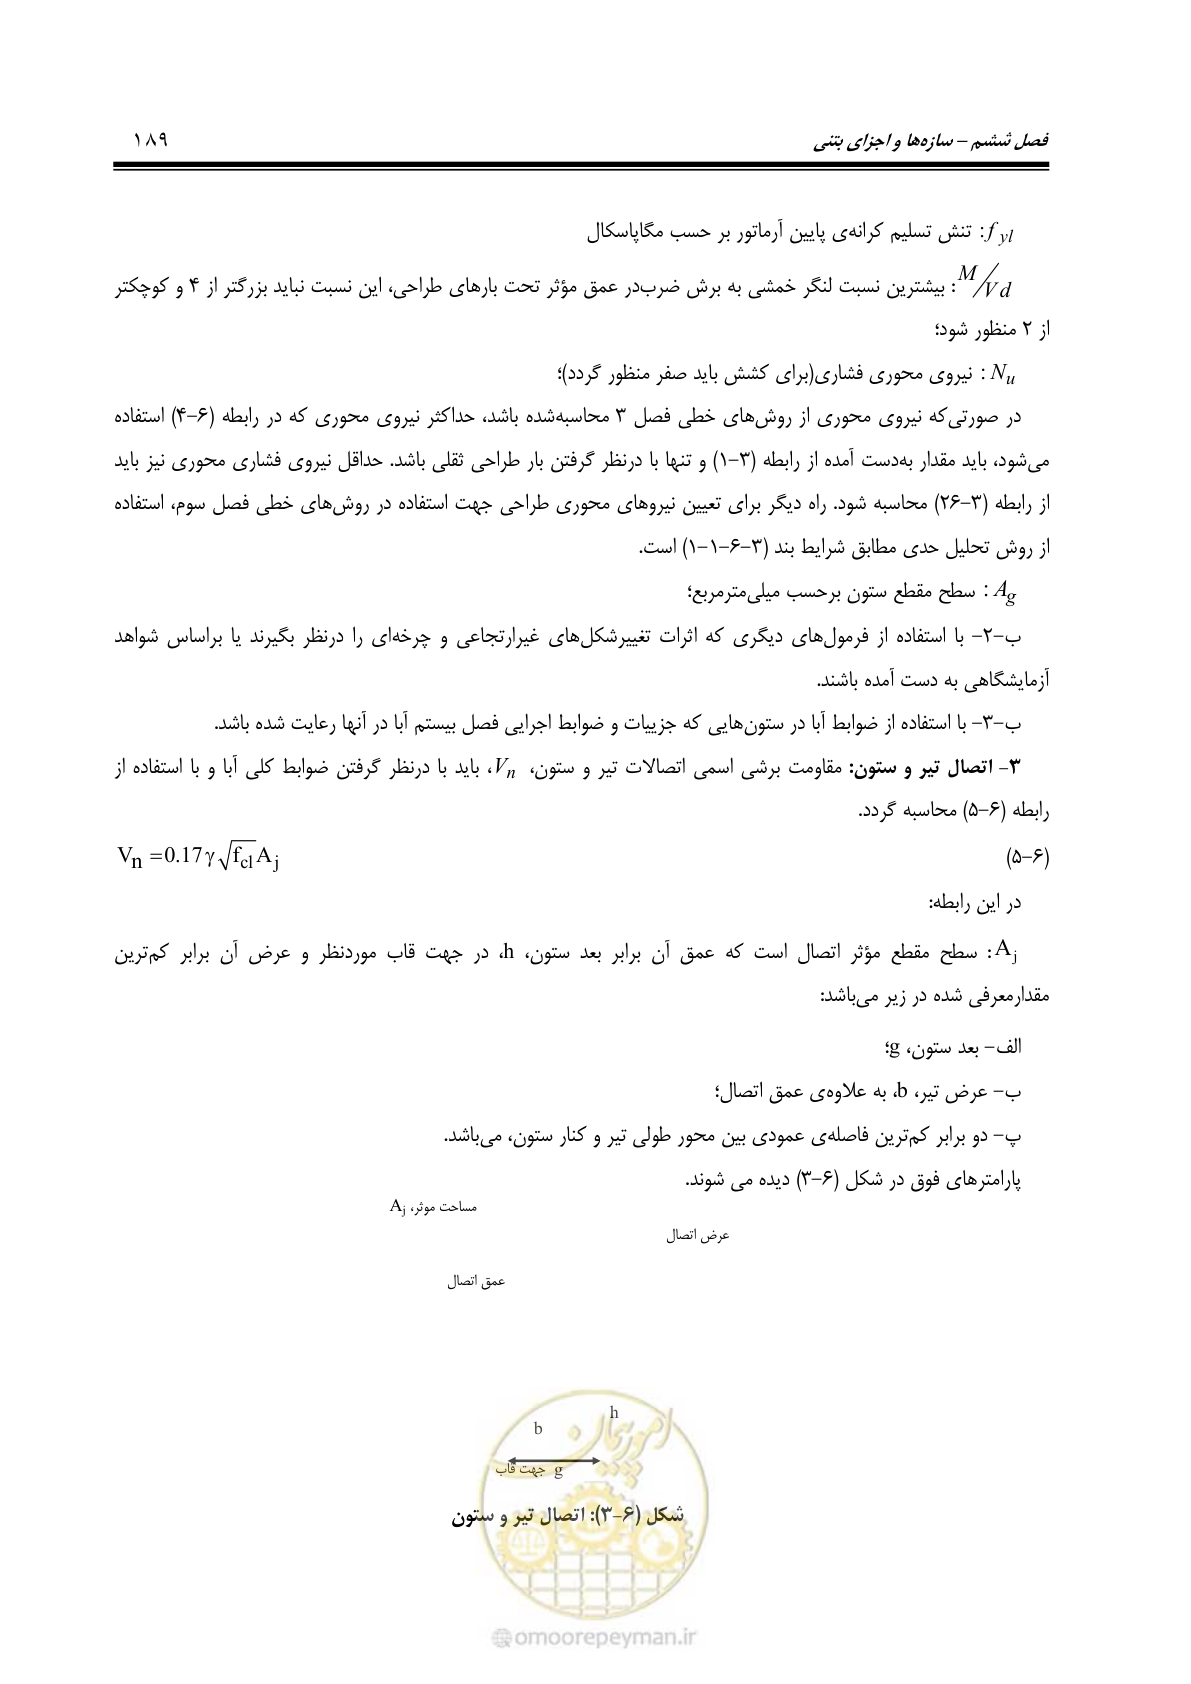 فصل ششم – سازه‌ها و اجزای بتنی ۱۸۹
f yl: تنش تسلیم کرانه‌ی پایین آرماتور بر حسب مگاپاسکال
M/Vd: بیشترین نسبت لنگر خمشی به برش ضرب‌در عمق مؤثر تحت بارهای طراحی، این نسبت نباید بزرگتر از ۴ و کوچکتر
از ۲ منظور شود؛
Nu : نیروی محوری فشاری(برای کشش باید صفر منظور گردد)؛
در صورتی‌که نیروی محوری از روش‌های خطی فصل ۳ محاسبه‌شده باشد، حداکثر نیروی محوری که در رابطه (۶-۴) استفاده
می‌شود، باید مقدار به‌دست آمده از رابطه (۳-۱) و تنها با درنظر گرفتن بار طراحی ثقلی باشد. حداقل نیروی فشاری محوری نیز باید
از رابطه (۳-۲۶) محاسبه شود. راه دیگر برای تعیین نیروهای محوری طراحی جهت استفاده در روش‌های خطی فصل سوم، استفاده
از روش تحلیل حدی مطابق شرایط بند (۳-۶-۱-۱) است.
Ag : سطح مقطع ستون برحسب میلی‌مترمربع؛
ب-۲- با استفاده از فرمول‌های دیگری که اثرات تغییرشکل‌های غیرارتجاعی و چرخه‌ای را درنظر بگیرند یا براساس شواهد
آزمایشگاهی به دست آمده باشند.
ب-۳- با استفاده از ضوابط آبا در ستون‌هایی که جزییات و ضوابط اجرایی فصل بیستم آبا در آنها رعایت شده باشد.
۳- اتصال تیر و ستون: مقاومت برشی اسمی اتصالات تیر و ستون، Vn، باید با درنظر گرفتن ضوابط کلی آبا و با استفاده از
رابطه (۶-۵) محاسبه گردد.
(۶-۵) Vn =0.17γ√fcl Aj
در این رابطه:
Aj: سطح مقطع مؤثر اتصال است که عمق آن برابر بعد ستون، h، در جهت قاب موردنظر و عرض آن برابر کم‌ترین
مقدارمعرفی شده در زیر می‌باشد:
الف- بعد ستون، g؛
ب- عرض تیر، b، به علاوه‌ی عمق اتصال؛
پ- دو برابر کم‌ترین فاصله‌ی عمودی بین محور طولی تیر و کنار ستون، می‌باشد.
پارامترهای فوق در شکل (۶-۳) دیده می شوند.
مساحت موثر، Aj
عرض اتصال
عمق اتصال
h
b
جهت قاب g
شکل (۶-۳): اتصال تیر و ستون
امور پیمان
omoorepeyman.ir